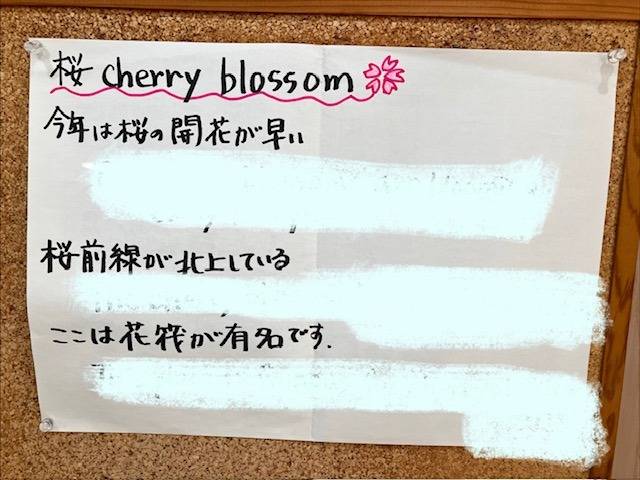 桜 cherry blossom
今年は桜の開花が早い
桜前線が北上している
ここは花筏が有名です.